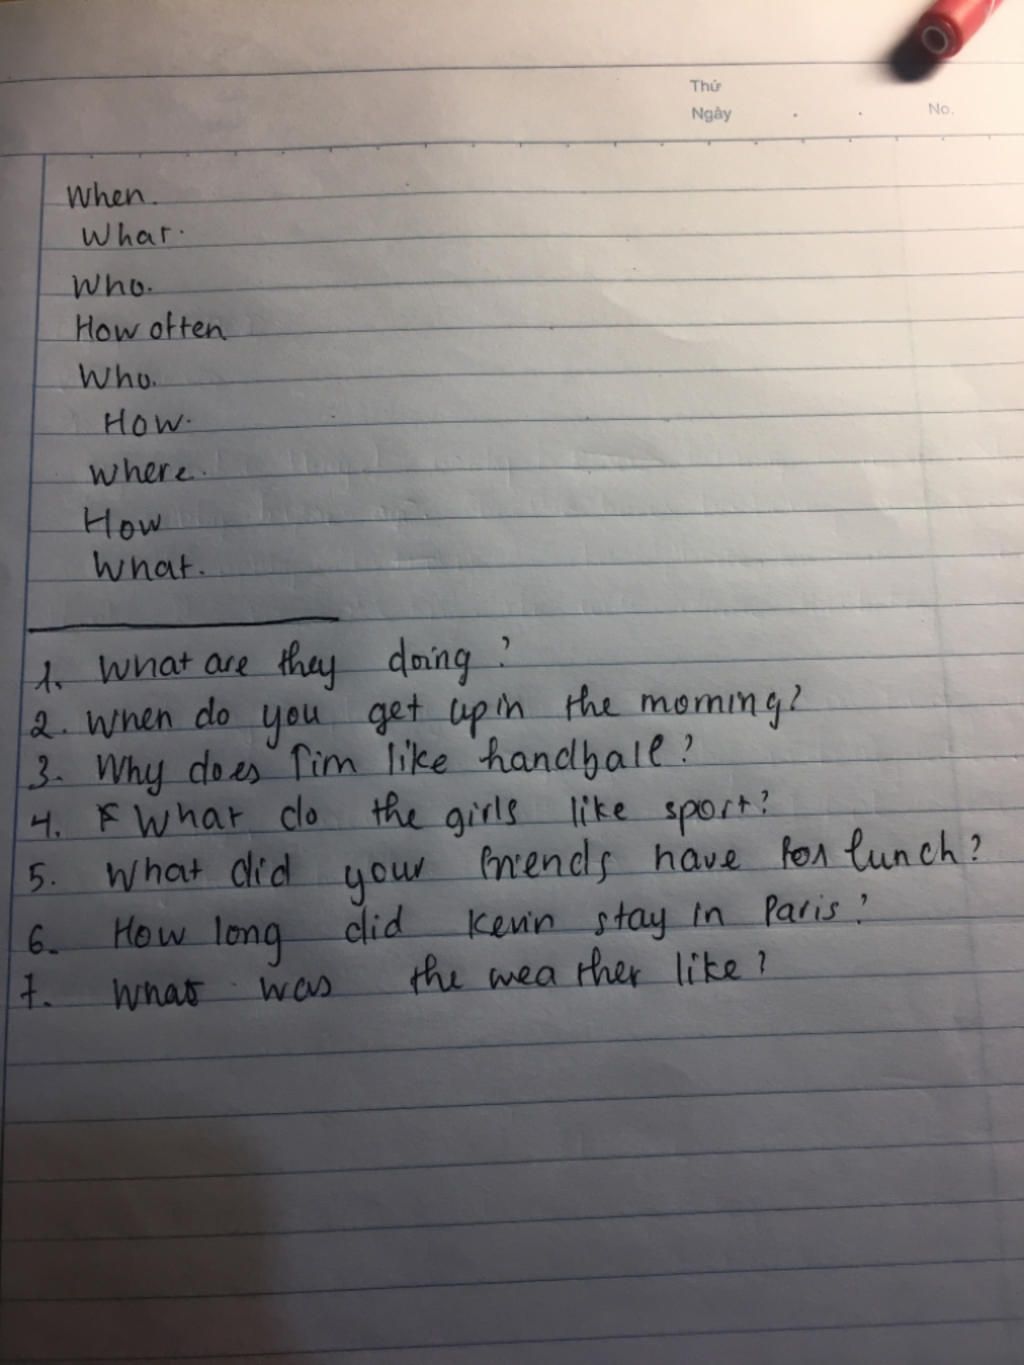 Thứ
Ngày . . No.
When.
What.
Who.
How often
Who.
How.
Where.
How
What.
1. What are they doing?
2. When do you get up in the morning?
3. Why does Tim like handball?
4. What do the girls like sport?
5. What did your friends have for lunch?
6. How long did Kevin stay in Paris?
7. What was the weather like?